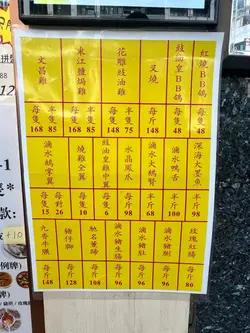 紅燒BB鴿
每隻
48
豉油皇BB鴿
每隻
48
叉燒
半斤
68
每斤
148
花雕豉油雞
半隻
75
每隻
148
東江鹽焗雞
半隻
85
每隻
168
文昌雞
半隻
85
每隻
168
深海大墨魚
半斤
98
滷水鴨舌
半斤
100
滷水大鵝腎
每斤
68
水晶鳳爪
半斤
98
豉油皇雞中翼
每隻
6
燒雞全翼
每隻
10
滷水鵝掌翼
每對
26
每隻
15
玫瑰紅腸
每斤
80
滷水豬脷
每斤
96
滷水豬肚
每斤
96
滷水豬生腸
每斤
96
馳名薑蹄
每斤
108
豬仔腳
每斤
128
九香牛𦟌
每斤
148
+10